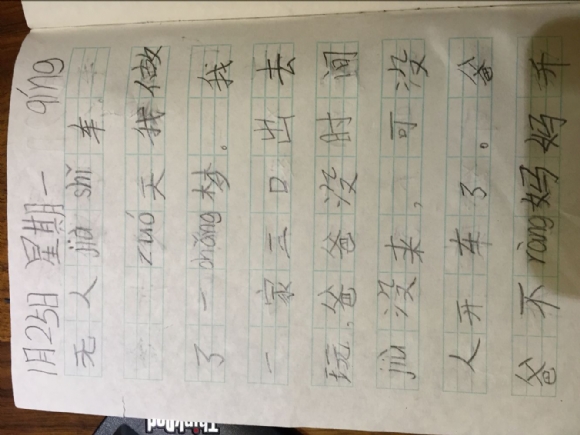 1月25日 星期一 qíng
无人jià shǐ车
zuó天我做
了一chǎng梦。我
一家三口出去
玩,爸爸没时间
jiù没来,可没
人开车了。爸
爸不ràng妈妈开
ThinkPad